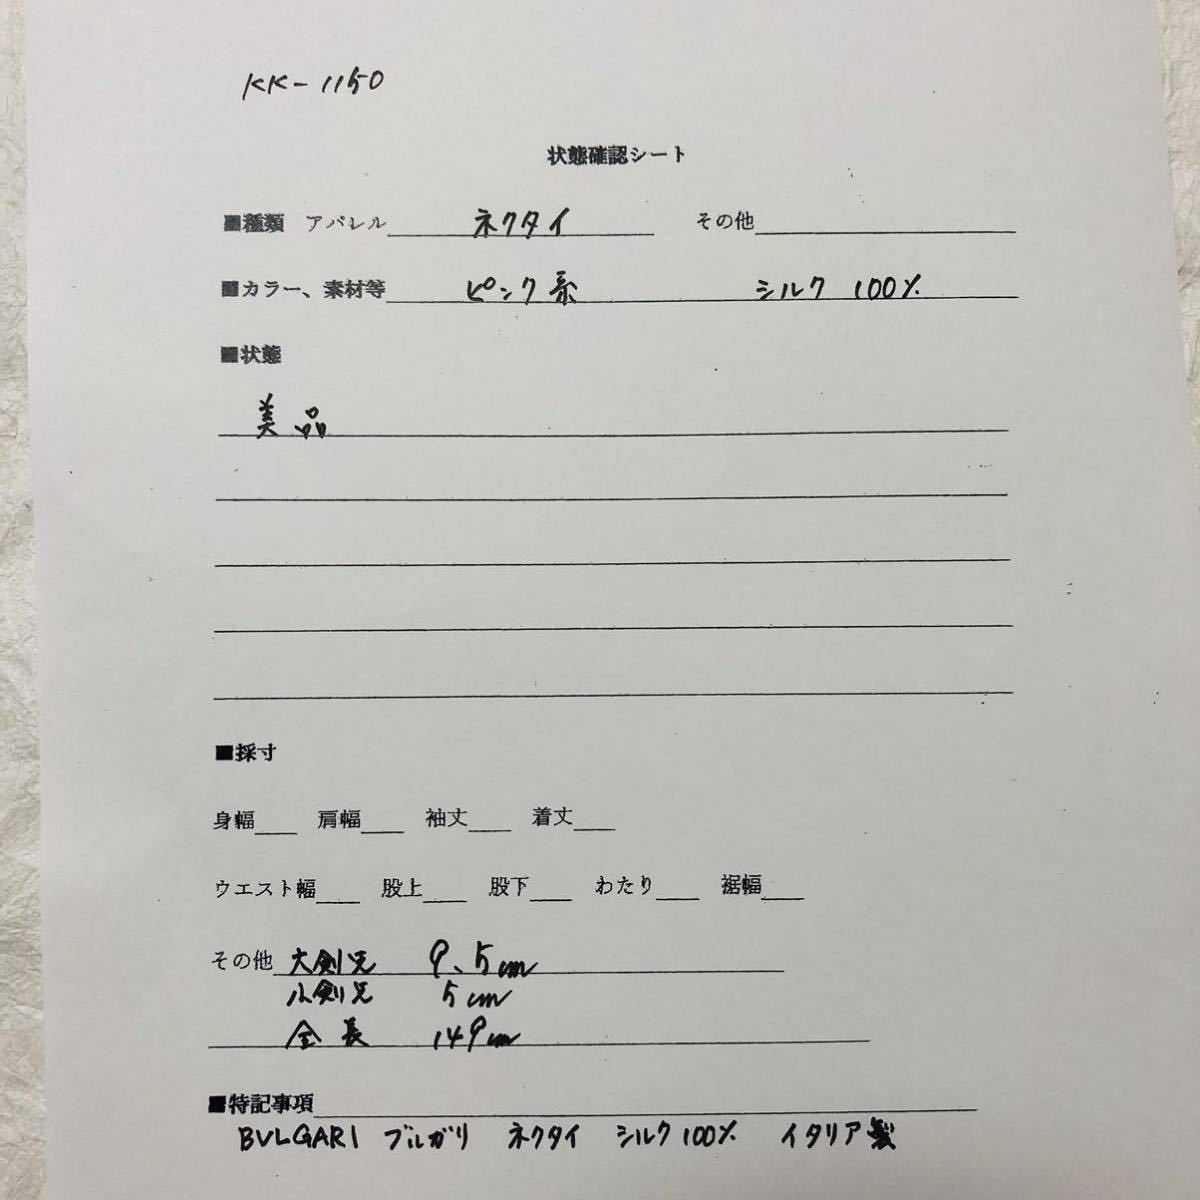 KK-1150
状態確認シート
■種類 アパレル ネクタイ その他
■カラー、素材等 ピンク系 シルク 100%
■状態
美品
■採寸
身幅 肩幅 袖丈 着丈
ウエスト幅 股上 股下 わたり 裾幅
その他 大剣先 9.5cm
小剣先 5cm
全長 149cm
■特記事項
BVLGARI ブルガリ ネクタイ シルク100% イタリア製